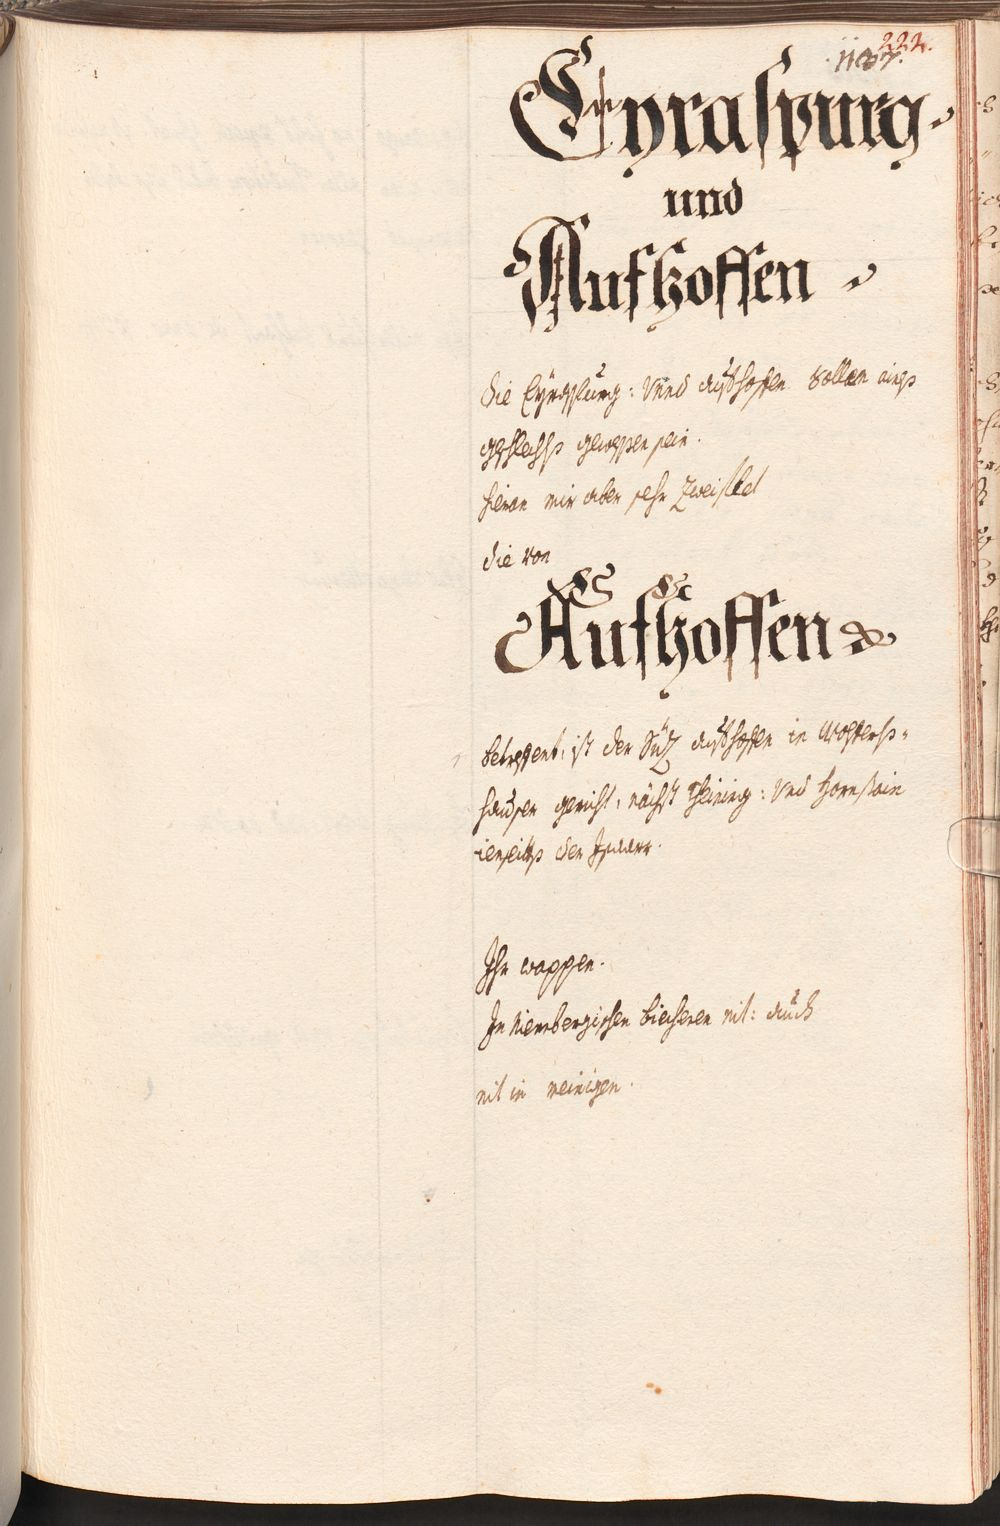 222.
1137.
Eyraspurg
und
Aufhoffen
die Eyrasplurg: Unnd aufhoffen sollen aines
geschlechts gewessen sein.
hieran mir aber sehr Zweiflet
die von
Aufhoffen
betreffent, ist der Sütz aufhoffen in Wolferts-
hauser gericht, nächst Theining: Und hornstain
ienseits der Isaarr.
Ihr wappen.
In Niernbergischen biecheren nit: auch
nit in meinigen.